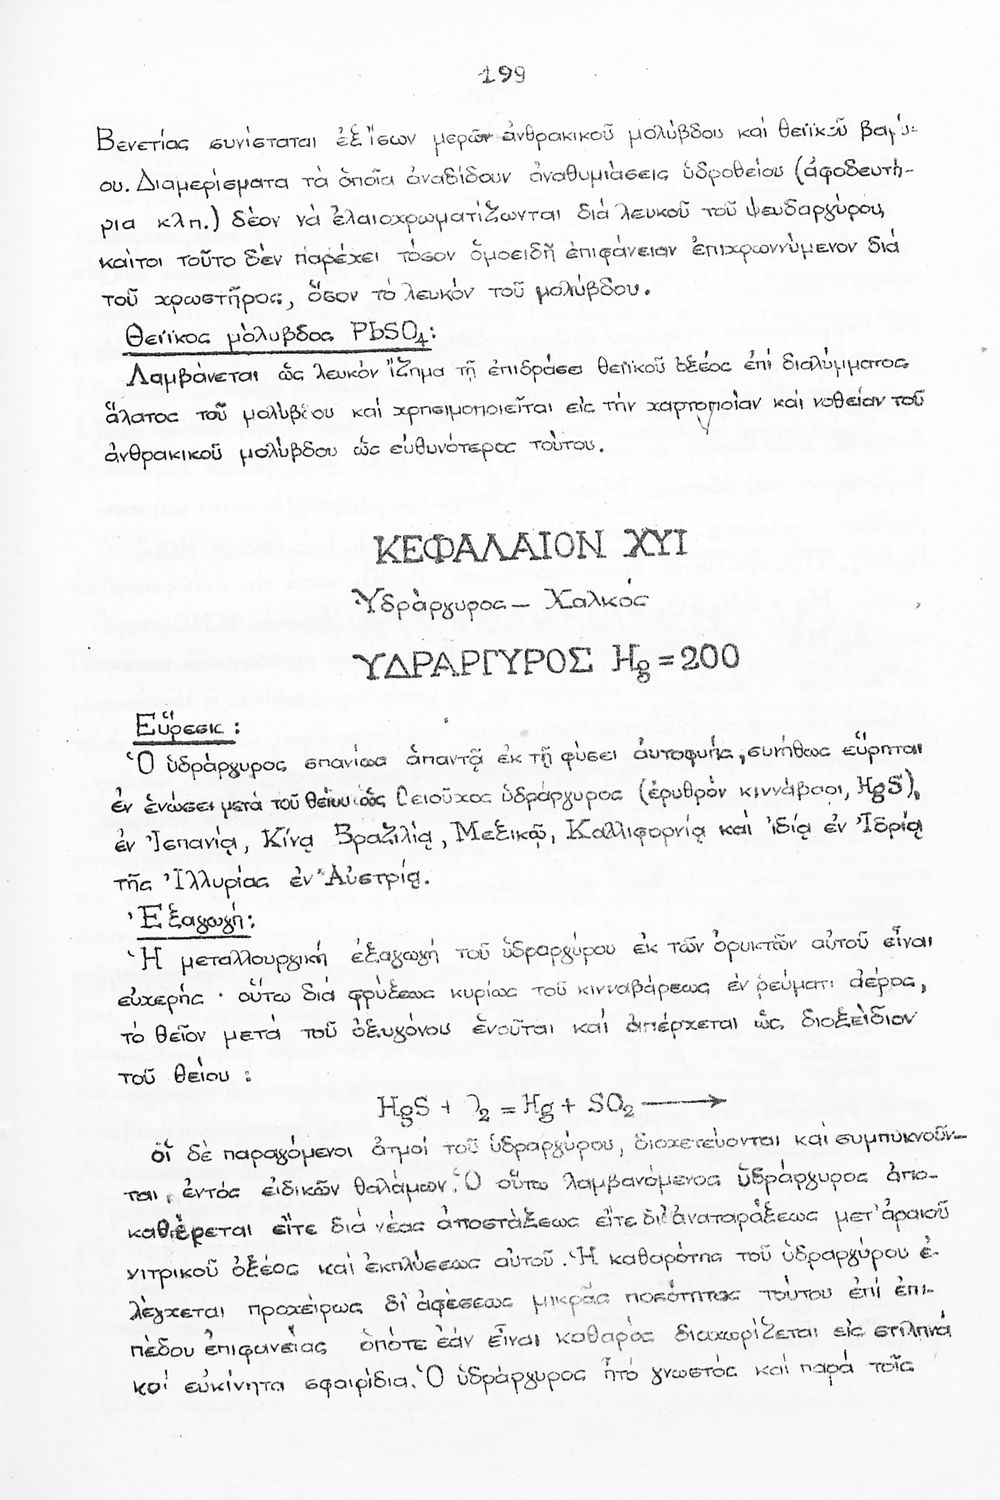 199
Βενετίας συνίσταται ἐξ ἴσων μερῶν ἀνθρακικοῦ μολύβδου καί θειϊκοῦ βαρύ-
ου. Διαμερίσματα τά ὁποῖα ἀναδίδουν ἀναθυμιάσεις ὑδροθείου (ἀφοδευτή-
ρια κλπ.) δέον νά ἐλαιοχρωματίζωνται διά λευκοῦ τοῦ ψευδαργύρου,
καίτοι τοῦτο δέν παρέχει τόσον ὁμοειδῆ ἐπιφάνειαν ἐπιχρωννύμενον διά
τοῦ χρωστῆρος, ὅσον τό λευκόν τοῦ μολύβδου.
Θειϊκος μόλυβδος PbSO4:
Λαμβάνεται ὡς λευκόν ἵζημα τῇ ἐπιδράσει θειϊκοῦ ὀξέος ἐπί διαλύμματος
ἅλατος τοῦ μολύβδου καί χρησιμοποιεῖται εἰς τήν χαρτοποιίαν καί νοθείαν τοῦ
ἀνθρακικοῦ μολύβδου ὡς εὐθυνότερος τούτου.
ΚΕΦΑΛΑΙΟΝ XYI
Ὑδράργυρος – Χαλκός
ΥΔΡΑΡΓΥΡΟΣ Hg = 200
Εὕρεσις :
Ὁ ὑδράργυρος σπανίως ἀπαντᾷ ἐκ τῇ φύσει αὐτοφυής, συνήθως εὕρηται
ἐν ἑνώσει μετά τοῦ θείου ὡς θειοῦχος ὑδράργυρος (ἐρυθρόν κιννάβαρι, HgS),
ἐν Ἱσπανίᾳ, Κίνᾳ Βραζιλίᾳ, Μεξικῷ, Καλλιφορνίᾳ καί ἰδίᾳ ἐν Ἰδρίᾳ
τῆς Ἰλλυρίας ἐν Αὐστρίᾳ.
Ἐξαγωγή:
Ἡ μεταλλουργική ἐξαγωγή τοῦ ὑδραργύρου ἐκ τῶν ὀρυκτῶν αὐτοῦ εἶναι
εὐχερής · οὕτω διά φρύξεως κυρίως τοῦ κινναβάρεως ἐν ρεύματι ἀέρος,
τό θεῖον μετά τοῦ ὀξυγόνου ἑνοῦται καί ἀπέρχεται ὡς διοξείδιον
τοῦ θείου :
HgS + O2 = Hg + SO2 →
οἵ δέ παραγόμενοι ἀτμοί τοῦ ὑδραργύρου, διοχετεύονται καί συμπυκνοῦν-
ται, ἐντός εἰδικῶν θαλάμων. Ὁ οὕτω λαμβανόμενος ὑδράργυρος ἀπο-
καθαίρεται εἴτε διά νέας ἀποστάξεως εἴτε δι' ἀναταράξεως μετ' ἀραιοῦ
νιτρικοῦ ὀξέος καί ἐκπλύσεως αὐτοῦ. Ἡ καθαρότης τοῦ ὑδραργύρου ἐ-
λέγχεται προχείρως δι' ἀφέσεως μικρᾶς ποσότητος τούτου ἐπί ἐπι-
πέδου ἐπιφανείας ὁπότε ἐάν εἶναι καθαρός διαχωρίζεται εἰς στιλπνά
καί εὐκίνητα σφαιρίδια. Ὁ ὑδράργυρος ἦτο γνωστός καί παρά τοῖς